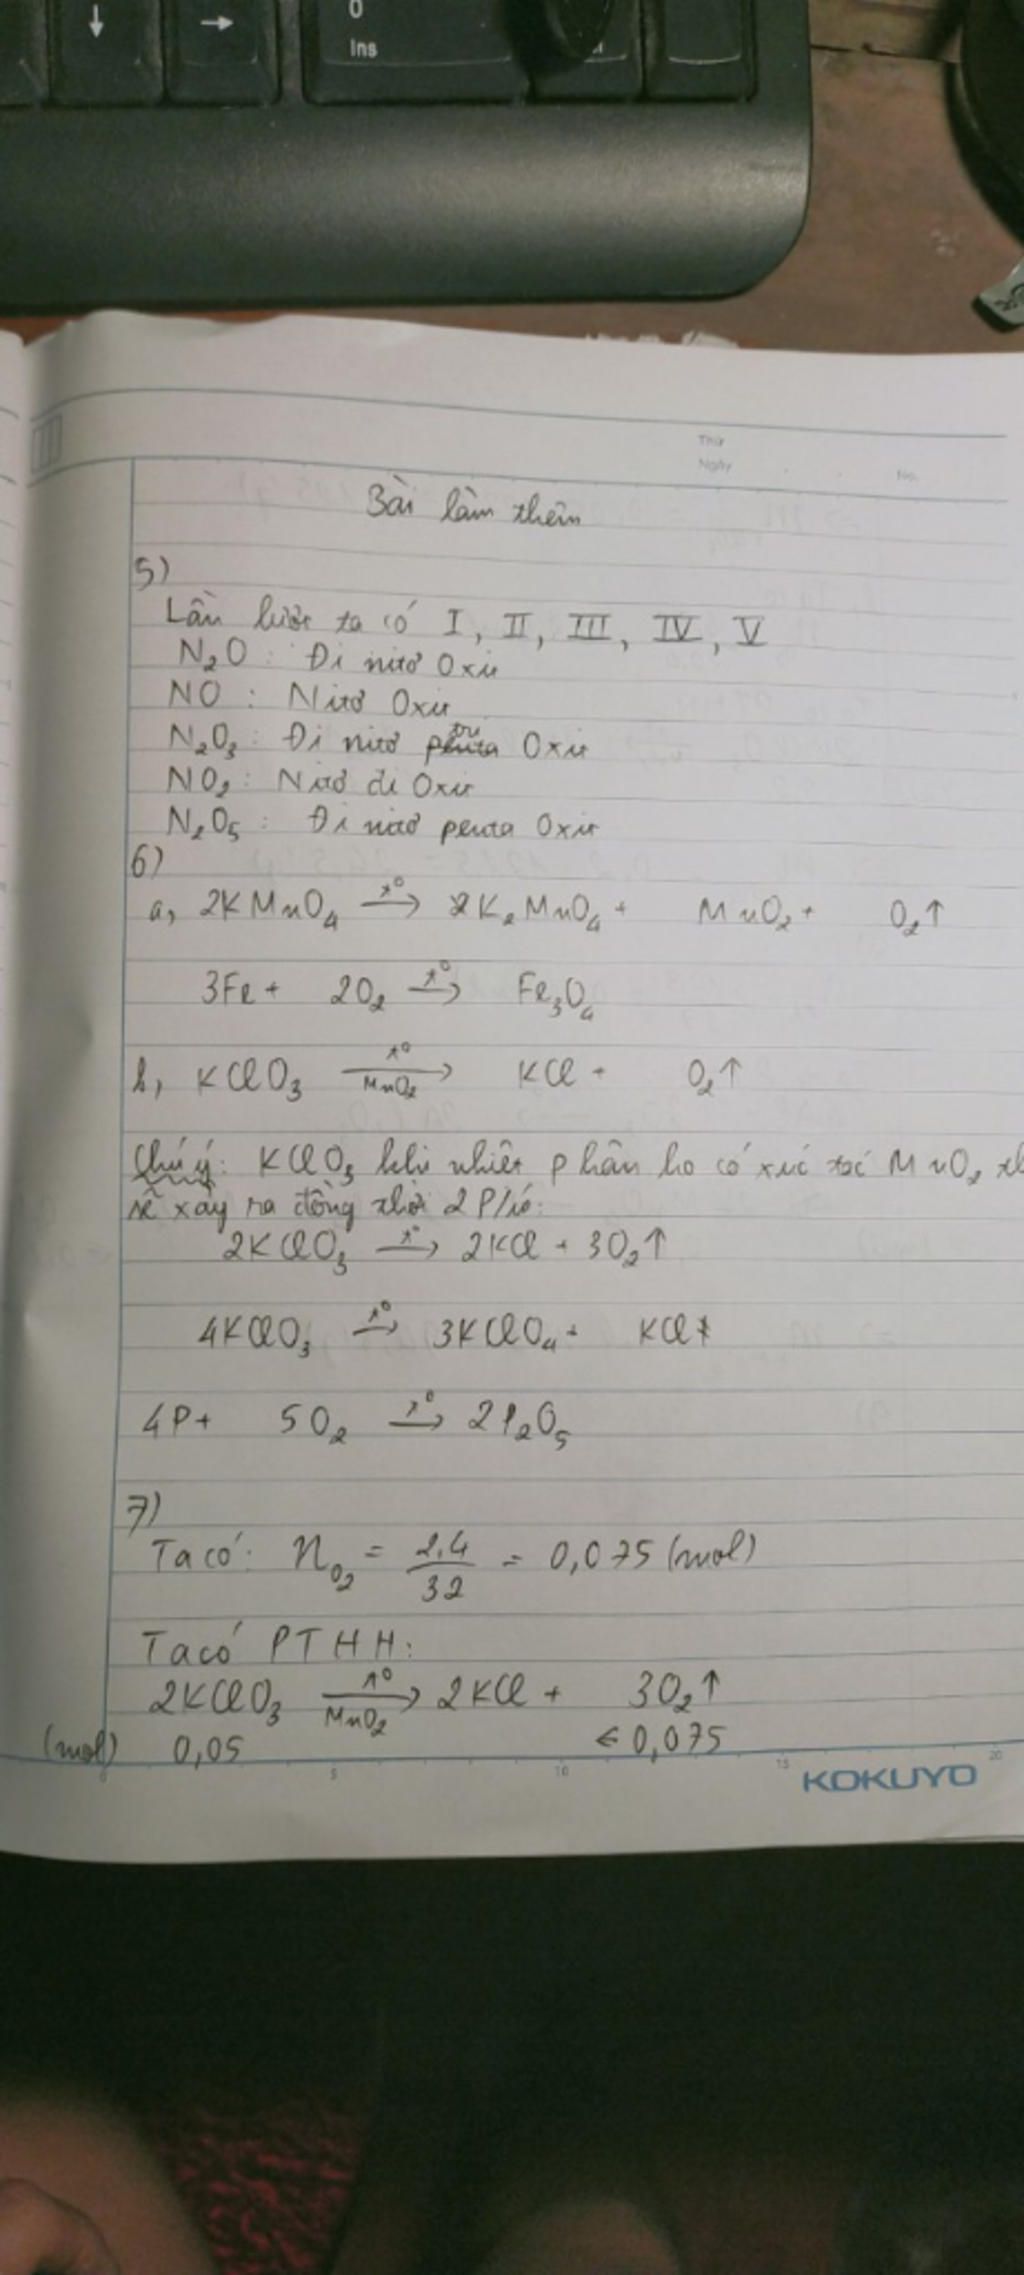 ↓ → 0
Ins
Thứ
Ngày No.
Bài làm thêm
5)
Lần lượt ta có I, II, III, IV, V
N₂O : Đi nitơ Oxit
NO : Nitơ Oxit
N₂O₃ : Đi nitơ tri Oxit
NO₂ : Nitơ đi Oxit
N₂O₅ : Đi nitơ penta Oxit
6)
a, 2KMnO₄ –t°→ K₂MnO₄ + MnO₂ + O₂↑
3Fe + 2O₂ –t°→ Fe₃O₄
b, KClO₃ –t°/MnO₂→ KCl + O₂↑
Chú ý: KClO₃ khi nhiệt phân ko có xúc tác MnO₂
sẽ xảy ra đồng thời 2 P/ứ:
2KClO₃ –t°→ 2KCl + 3O₂↑
4KClO₃ –t°→ 3KClO₄ + KCl
4P + 5O₂ –t°→ 2P₂O₅
7)
Ta có: n_O₂ = 2.4/32 = 0,075 (mol)
Ta có PTHH:
2KClO₃ –t°/MnO₂→ 2KCl + 3O₂↑
(mol) 0,05 ← 0,075
0 5 10 15 20
KOKUYO